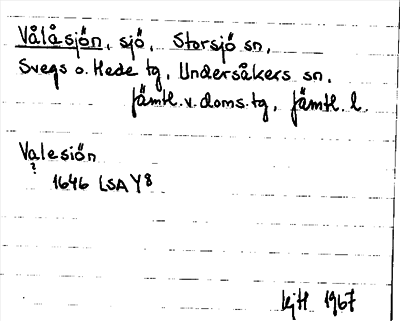 Vålåsjön, sjö, Storsjö sn,
Svegs o. Hede tg, Undersåkers sn.
Jämtl. v. doms. tg, Jämtl. l.
Valesiön
?
1646 LSA Y8
kjH 1967